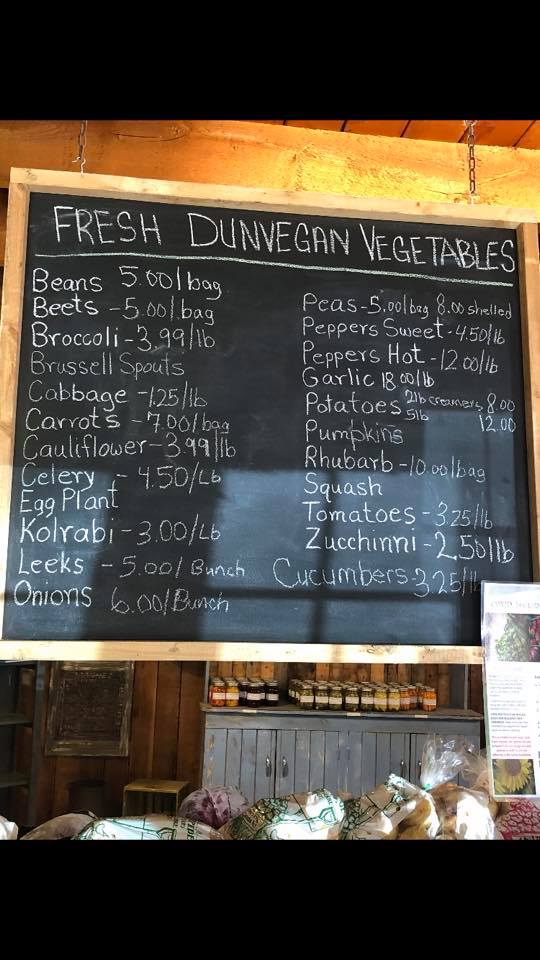 FRESH DUNVEGAN VEGETABLES
Beans 5.00/bag
Beets - 5.00/bag
Broccoli - 3.99/lb
Brussell Spouts
Cabbage - 1.25/lb
Carrots - 7.00/bag
Cauliflower - 3.99/lb
Celery - 4.50/Lb
Egg Plant
Kolrabi - 3.00/Lb
Leeks - 5.00/Bunch
Onions 6.00/Bunch
Peas - 5.00/bag 8.00 shelled
Peppers Sweet - 4.50/lb
Peppers Hot - 12.00/lb
Garlic 18.00/lb
Potatoes 2lb creamers 8.00
5lb 12.00
Pumpkins
Rhubarb - 10.00/bag
Squash
Tomatoes - 3.25/lb
Zucchinni - 2.50/lb
Cucumbers - 3.25/lb